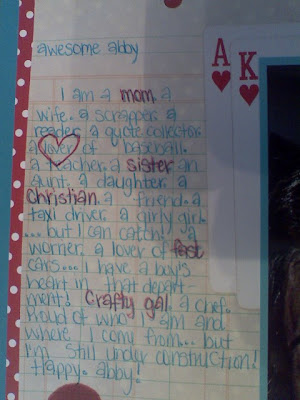 awesome abby
I am a mom. a
wife. a scrapper. a
reader. a quote collector.
a lover of baseball.
a teacher. a sister. an
aunt. a daughter. a
Christian. a friend. a
taxi driver. a girly girl.
... but I can catch! a
women. a lover of fast
cars... I have a boy's
heart in that depart-
ment! Crafty gal. a chef.
Proud of who I am and
where I come from... but
I'm still under construction!
Happy. abby!
A
K